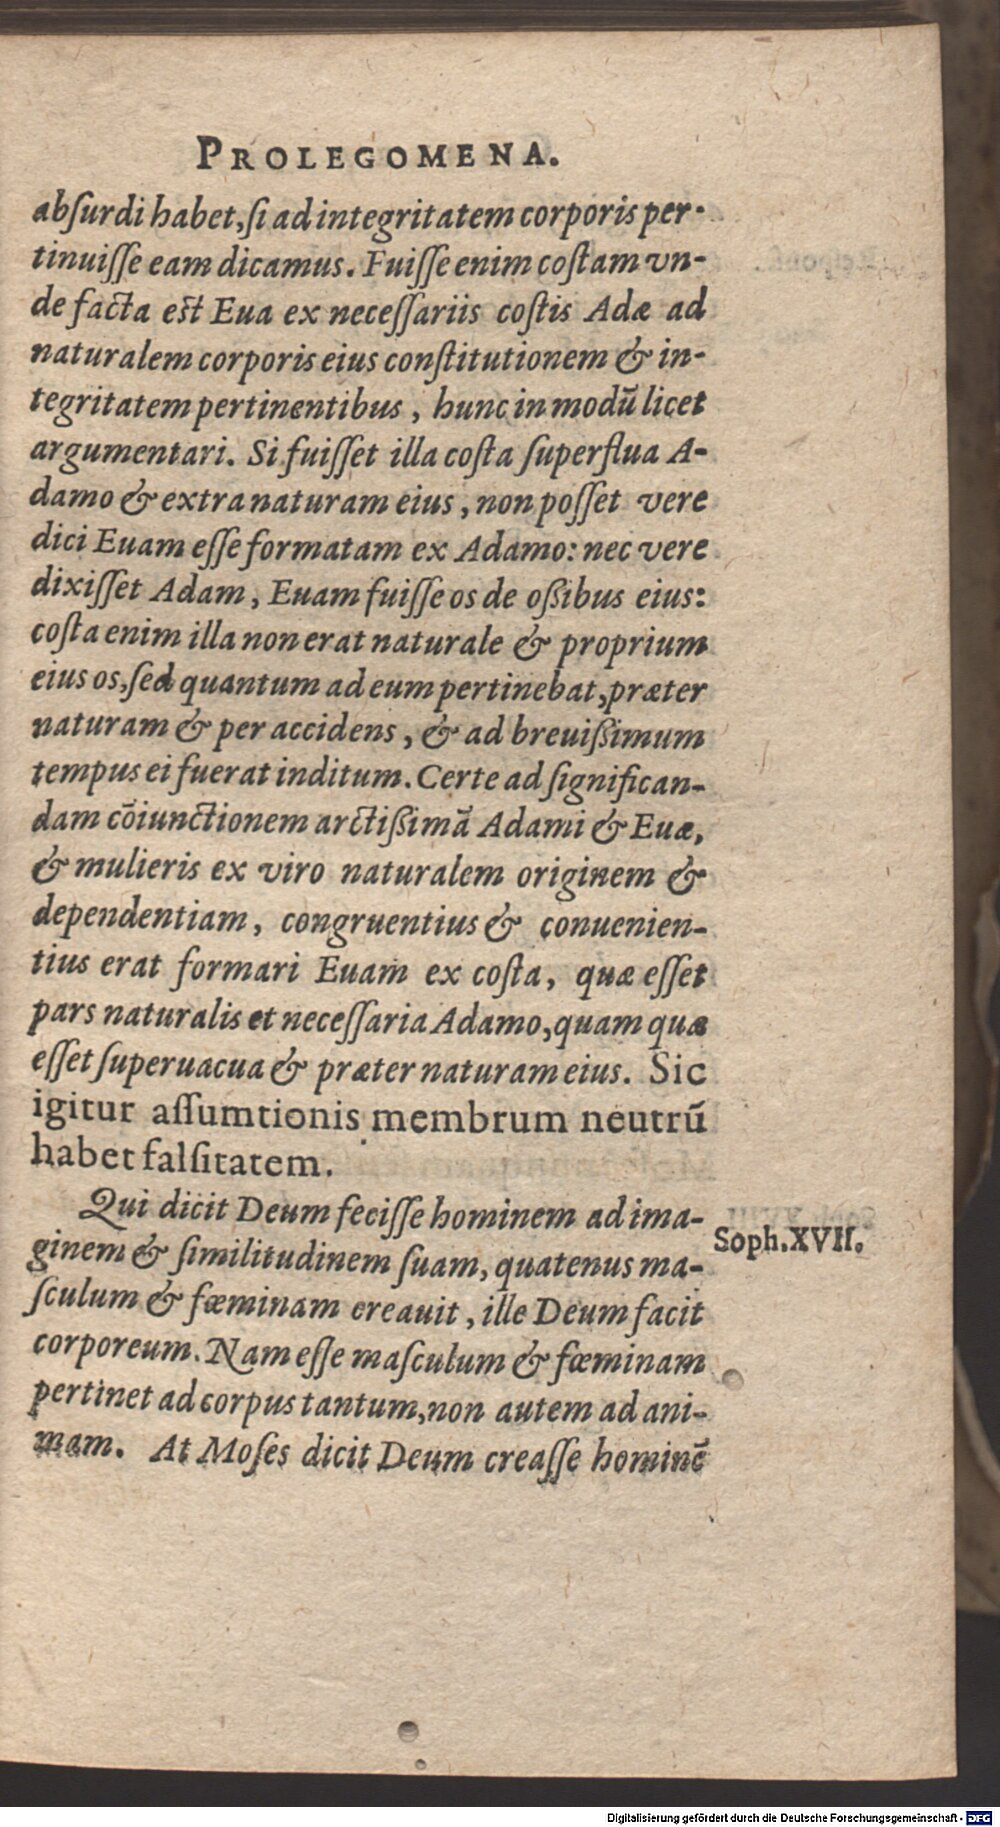 PROLEGOMENA.
abſurdi habet, ſi ad integritatem corporis per-
tinuiſſe eam dicamus. Fuiſſe enim coſtam vn-
de facta est Eua ex neceſſariis coſtis Adæ ad
naturalem corporis eius conſtitutionem & in-
tegritatem pertinentibus, hunc in modū licet
argumentari. Si fuiſſet illa coſta ſuperflua A-
damo & extra naturam eius, non poſſet vere
dici Euam eſſe formatam ex Adamo: nec vere
dixiſſet Adam, Euam fuiſſe os de oßibus eius:
coſta enim illa non erat naturale & proprium
eius os, ſed quantum ad eum pertinebat, præter
naturam & per accidens, & ad breuißimum
tempus ei fuerat inditum. Certe ad ſignifican-
dam cōiunctionem arctißimā Adami & Euæ,
& mulieris ex viro naturalem originem &
dependentiam, congruentius & conuenien-
tius erat formari Euam ex coſta, quæ eſſet
pars naturalis et neceſſaria Adamo, quam quæ
eſſet ſuperuacua & præter naturam eius. Sic
igitur aſſumtionis membrum neutrū
habet falſitatem.
Qui dicit Deum feciſſe hominem ad ima-
ginem & ſimilitudinem ſuam, quatenus ma-
Soph. XVII.
ſculum & fœminam creauit, ille Deum facit
corporeum. Nam eſſe maſculum & fœminam
pertinet ad corpus tantum, non autem ad ani-
mam. At Moſes dicit Deum creaſſe hominē
Digitalisierung gefördert durch die Deutsche Forschungsgemeinschaft - DFG